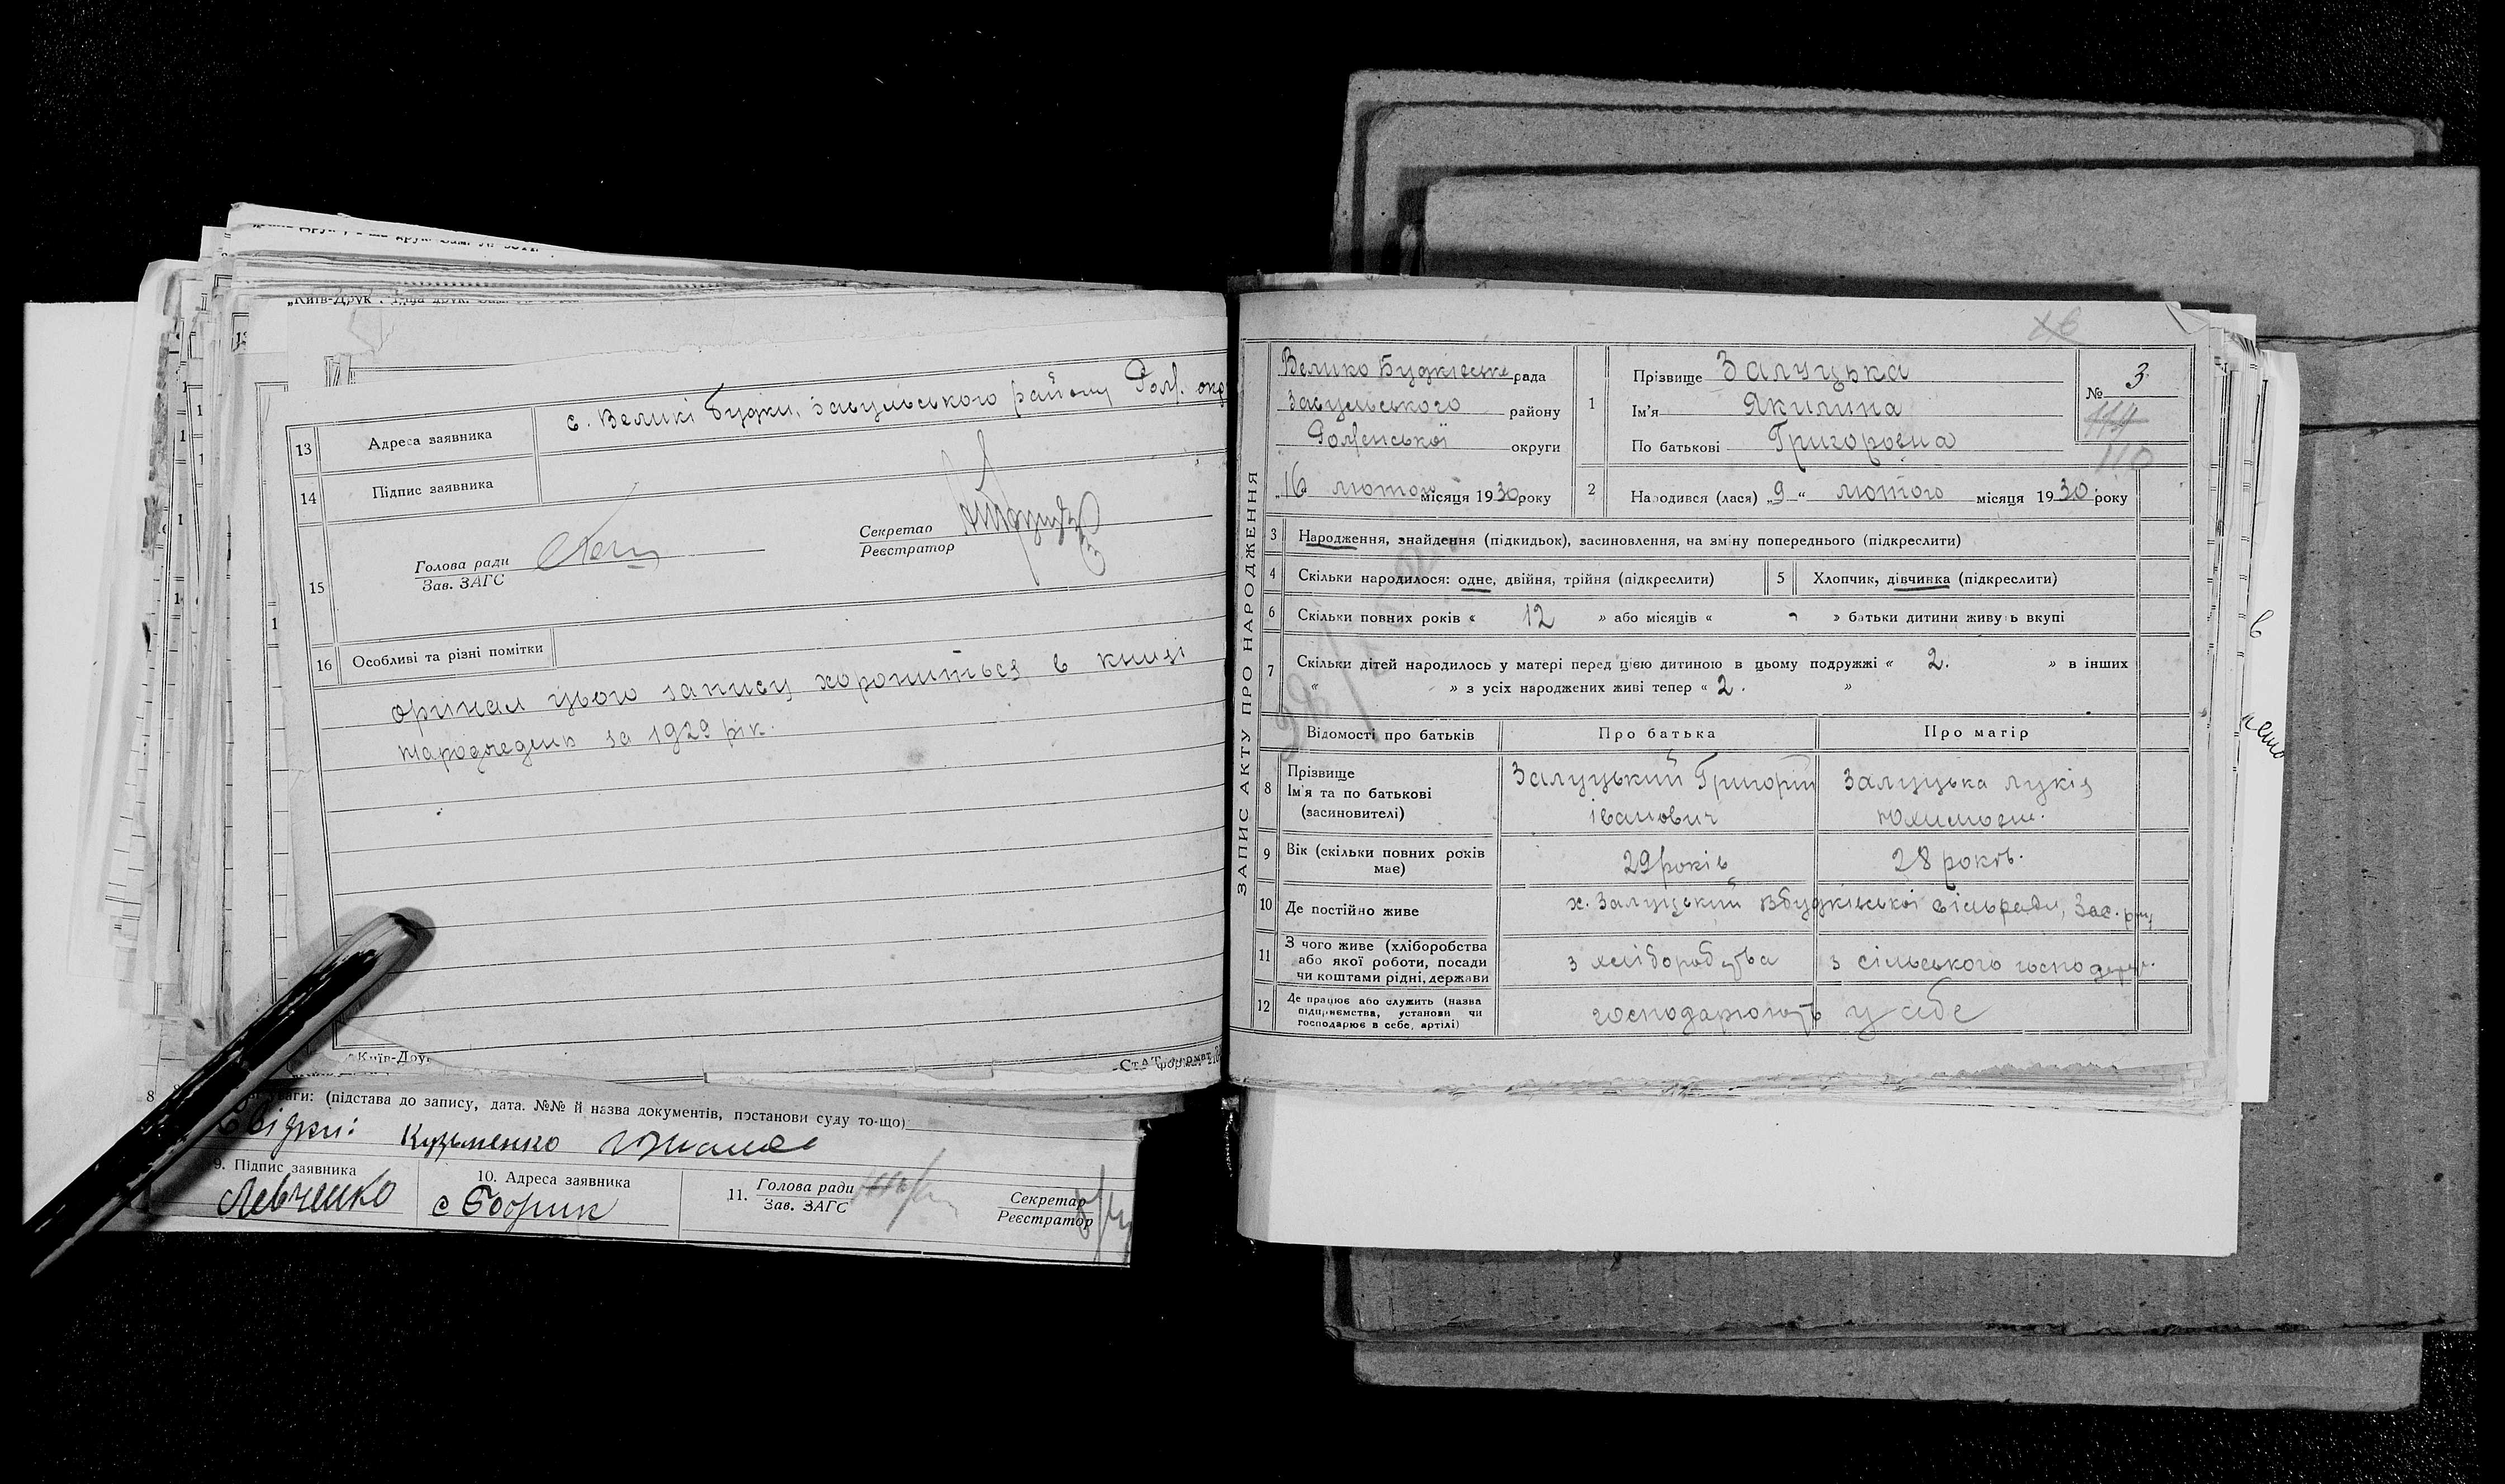 „Київ-Друк", 1-ша друк. Зам.
13 Адреса заявника с. Великі Будки, Засульського району Ром. окр
14 Підпис заявника
15 Голова ради
Зав. ЗАГС
Секретар
Реєстратор
16 Особливі та різні помітки
орінал цього запису хорониться в книзі
народжень за 1929 рік.
Київ-Друк
СтАТ формат
8
уваги: (підстава до запису, дата. №№ й назва документів, постанови суду то-що)
Свідки: Кузьменко
9. Підпис заявника
Левченко
10. Адреса заявника
с Бобрик
11. Голова ради
Зав. ЗАГС
Секретар
Реєстратор
ЗАПИС АКТУ ПРО НАРОДЖЕННЯ
Велико Будківське рада
Засульського району
Роменської округи
„16 лютого місяця 1930 року
1 Прізвище Залуцька
Ім'я Якилина
По батькові Григоровна
№ 3
114
110
2 Народився (лася) „9 “ лютого місяця 1930 року
3 Народження, знайдення (підкидьок), засиновлення, на зміну попереднього (підкреслити)
4 Скільки народилося: одне, двійня, трійня (підкреслити) 5 Хлопчик, дівчинка (підкреслити)
6 Скільки повних років « 12 » або місяців « - » батьки дитини живуть вкупі
7 Скільки дітей народилось у матері перед цією дитиною в цьому подружжі « 2. » в інших
« » з усіх народжених живі тепер « 2. »
Відомості про батьків Про батька Про матір
8 Прізвище
Ім'я та по батькові
(засиновителі)
Залуцький Григорій
Іванович
Залуцька Лукія
Юхимовн.
9 Вік (скільки повних років має) 29 років 28 років.
10 Де постійно живе х. Залуцький Вбудківської сільради, Зас. р-ну
11 З чого живе (хліборобства
або якої роботи, посади
чи коштами рідні, держави
з хліборобства з сільського господар.
12 Де працює або служить (назва
підприємства, установи чи
господарює в себе, артілі)
господарюють у себе